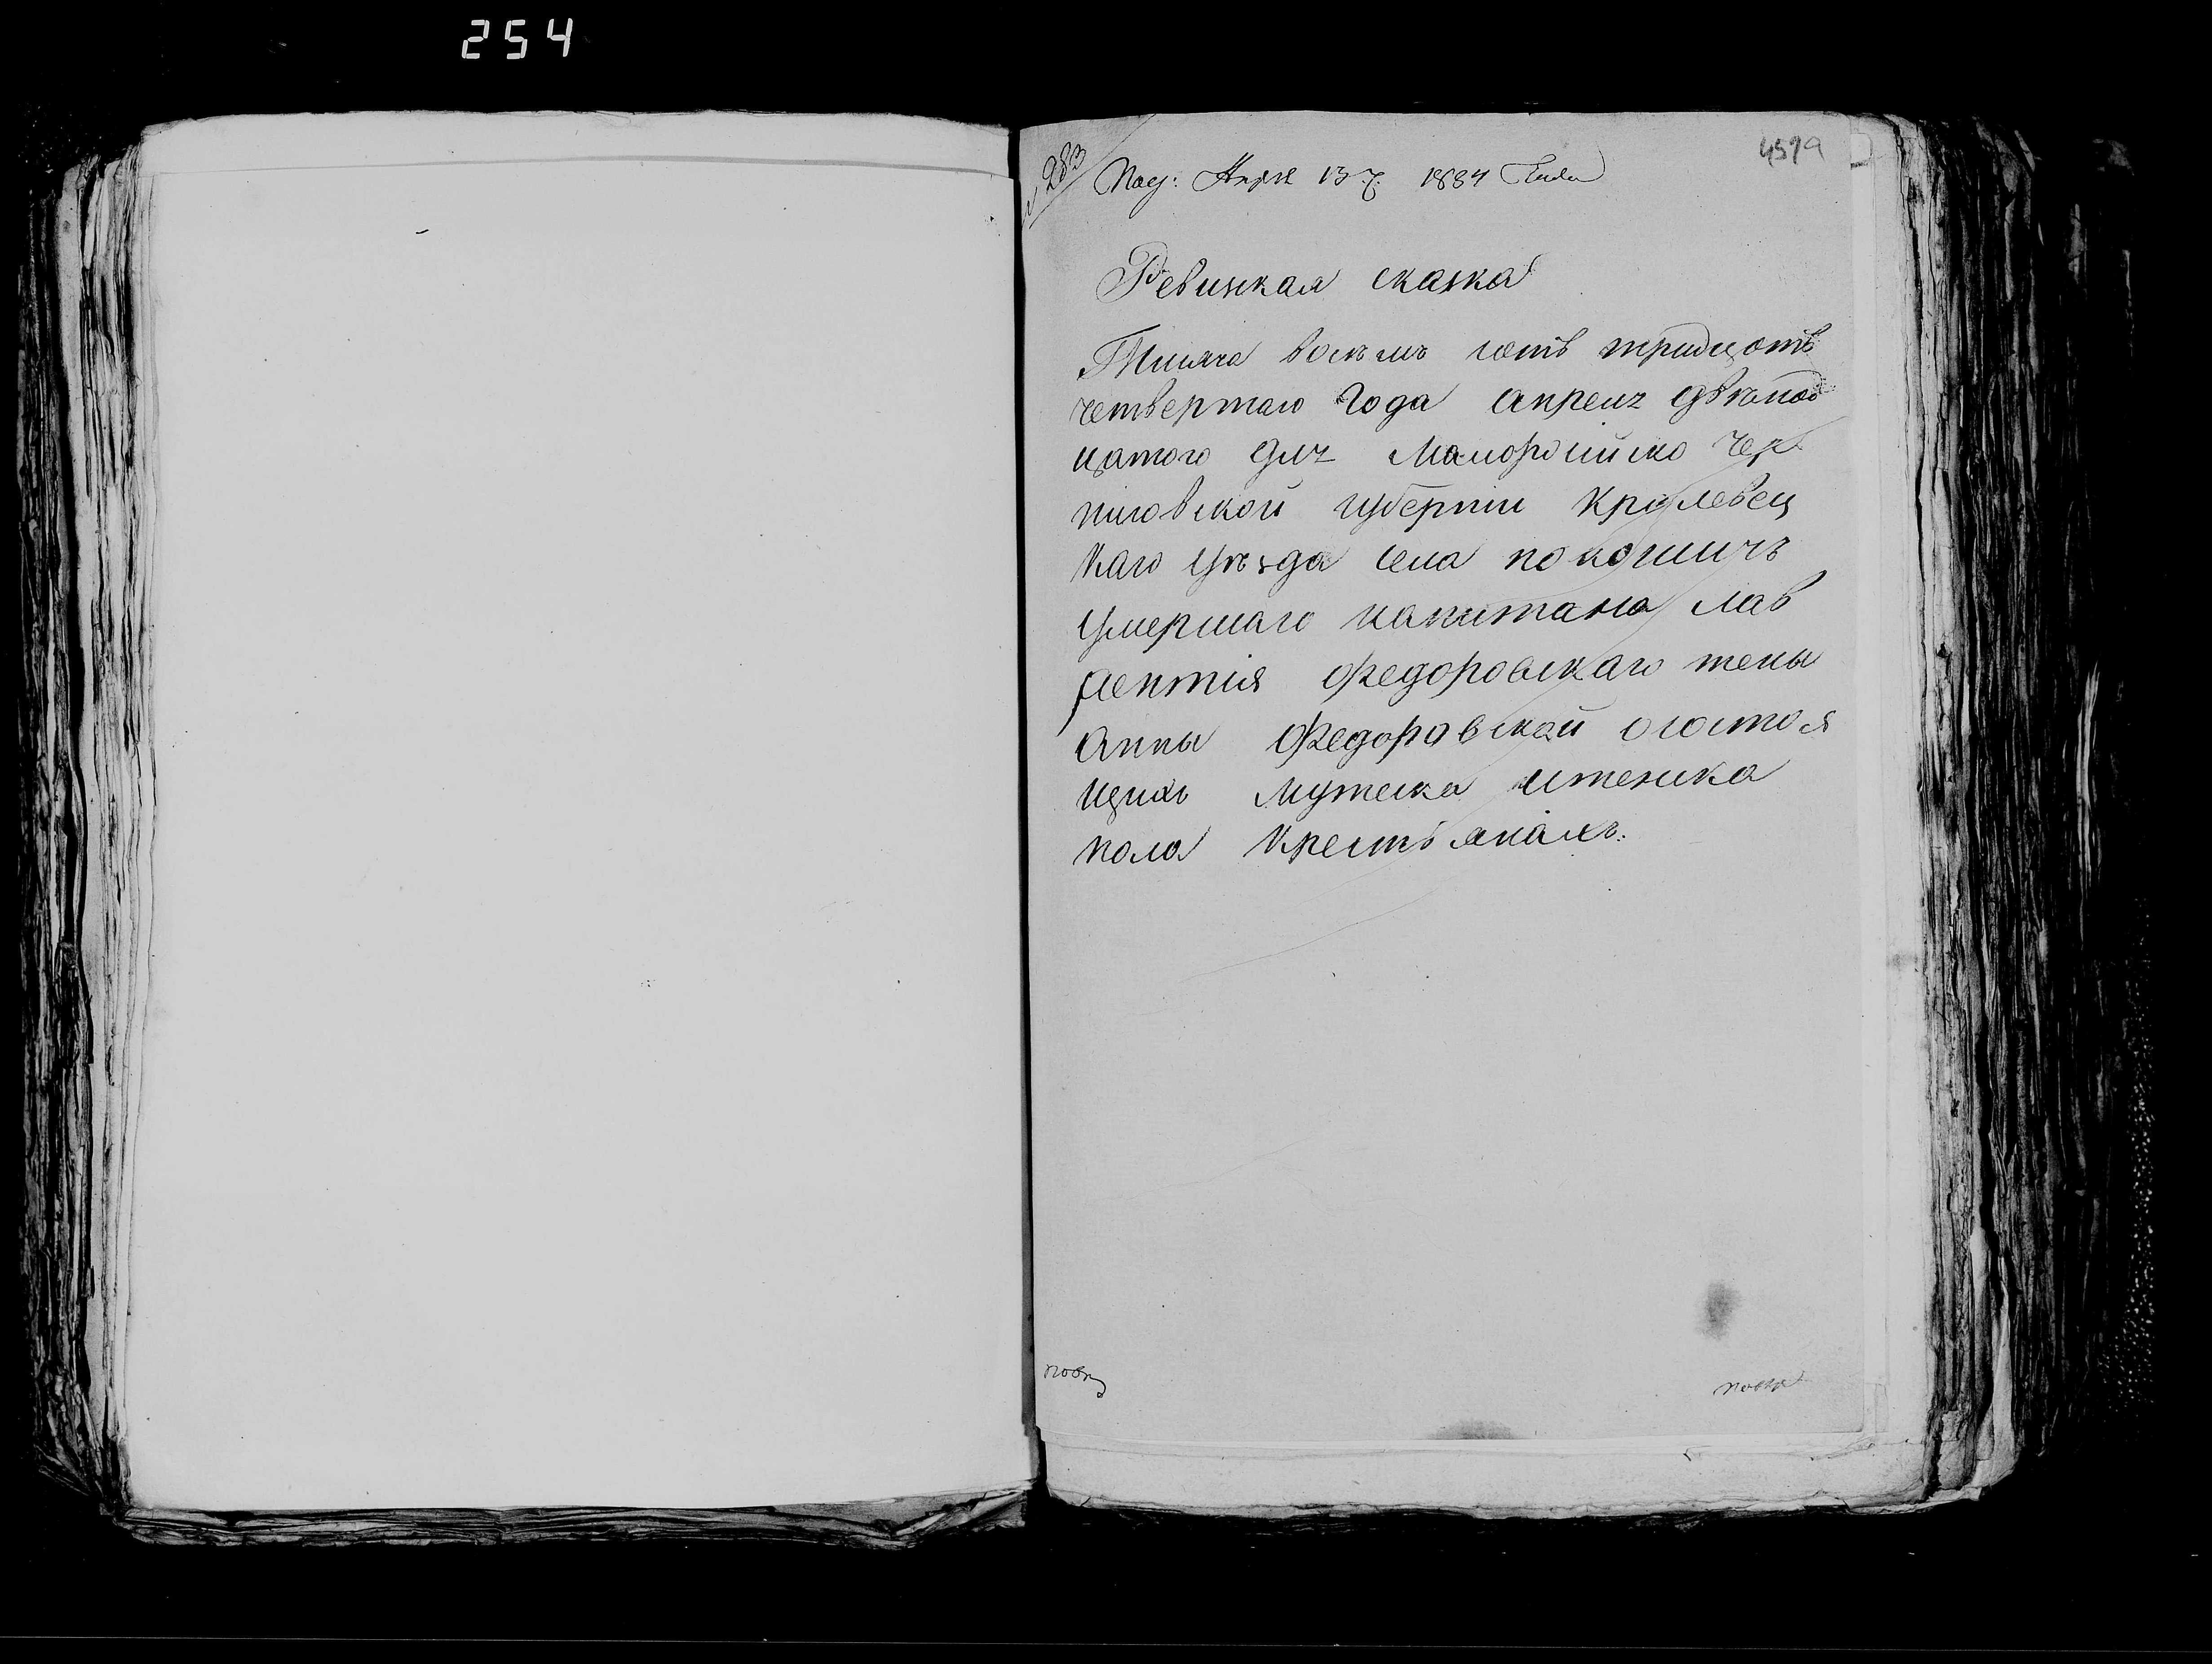 254
283
4579
Под: Апреля 13 ч. 1834 Года
Ревизкая сказка
Тисяча восемъ сотъ тридцотъ
четвертаго Года апреля двенад
цатого дня Малоросийско Чер
ниговской губернии Кролевец
каго уезда села покошичъ
умершаго капитана лав
рентия Федоровскаго жены
анны Федоровской осостоя
щихъ мужеска иженска
пола крестьянахъ.